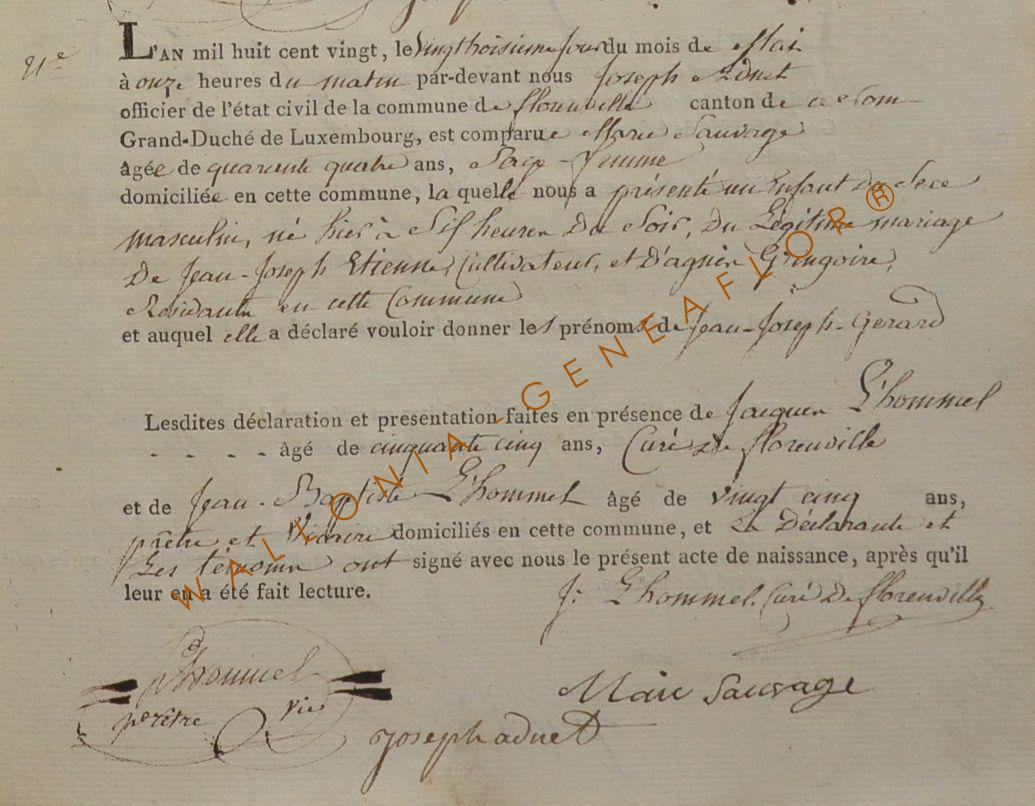 21e
L'AN mil huit cent vingt, le Vingttroisieme jour du mois de Mai
à onze heures du matin par-devant nous Joseph Adnet
officier de l'état civil de la commune de florenville canton de ce Nom
Grand-Duché de Luxembourg, est comparue Marie Sauvage
âgée de quarente quatre ans, Sage-femme
domiciliée en cette commune, la quelle nous a présenté un Enfant du Sexe
masculin, né hier à Six heures du Soir, Du Légitime mariage
De Jean-Joseph Etienne, Cultivateur, et D'agnès Gringoire,
Residants en cette Commune
et auquel elle a déclaré vouloir donner les prénoms de Jean-Joseph-Gerard
Lesdites déclaration et presentation faites en présence de Jacques L'hommel
- - - - âgé de cinquante cinq ans, Curé De florenville
et de Jean-Baptiste L'hommel âgé de vingt cinq ans,
prêtre et Vicaire domiciliés en cette commune, et La Déclarante et
Les témoins ont signé avec nous le présent acte de naissance, après qu'il
leur en a été fait lecture.
J: L'hommel. Curé De florenville
L'hommel
prêtre vic
Marie Sauvage
joseph adnet
WALLONIA-GENEAFLOR®